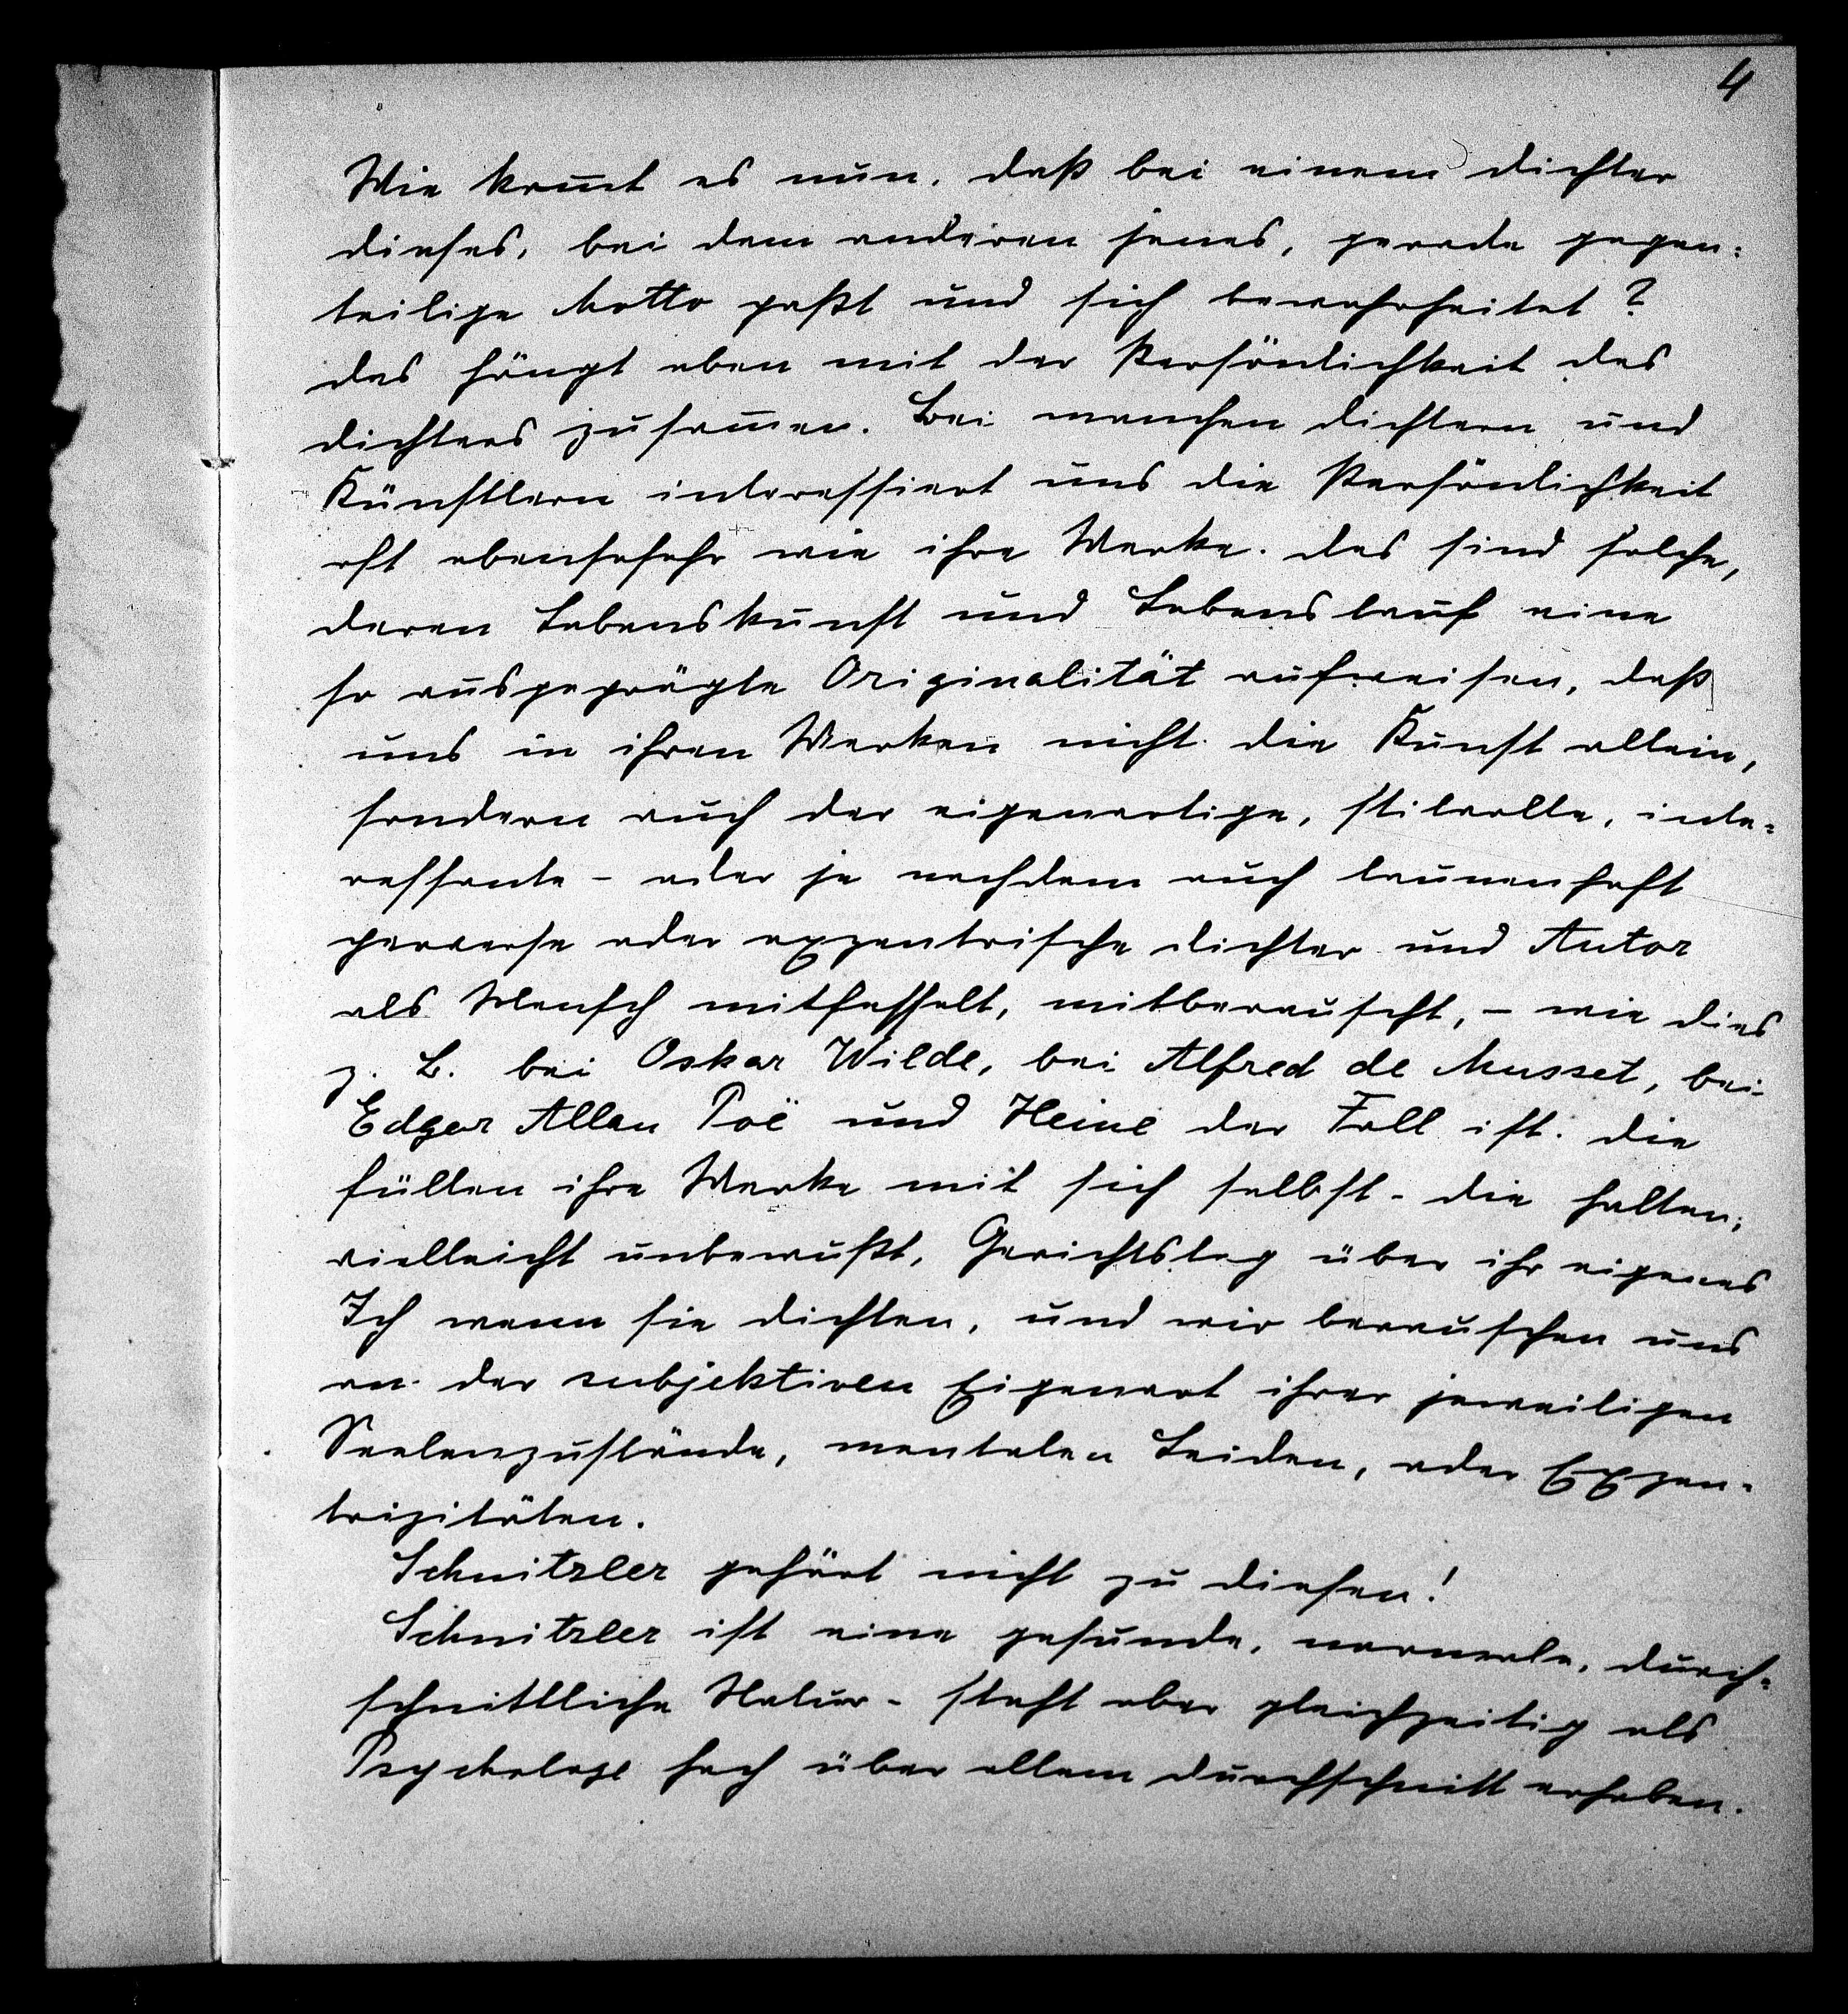 4
Wie kom̄t es nun, daß bei einem Dichter
dieses, bei dem anderen jenes, gerade gegen-
teilige Motto paßt und sich bewahrheitet?
Das hängt eben mit der Persönlichkeit des
Dichters zusam̄en. Bei manchen Dichtern und
Künstlern interessiert uns die Persönlichkeit
oft ebensosehr wie ihre Werke. Das sind solche,
deren Lebenskunst und Lebenslauf eine
so ausgeprägte Originalität aufweisen, daß
uns in ihren Werken nicht die Kunst allein,
sondern auch der eigenartige, stilvolle, inte-
ressante – oder je nachdem auch launenhaft
perverse oder exzentrische Dichter und Autor
als Mensch mitfesselt, mitberauscht, – wie dies
z. B. bei Oskar Wilde, bei Alfred de Musset, bei
Edgar Allan Poë und Heine der Fall ist. Die
füllen ihre Werke mit sich selbst – die halten,
vielleicht unbewußt, Gerichtstag über ihr eigenes
Ich wenn sie dichten, und wir berauschen uns
an der subjektiven Eigenart ihrer jeweiligen
Seelenzustände, mentalen Leiden, oder Exzen-
trizitäten.
Schnitzler gehört nicht zu diesen!
Schnitzler ist eine gesunde, normale, durch-
schnittliche Natur – steht aber gleichzeitig als
Psychologe hoch über allem Durchschnitt erhaben.